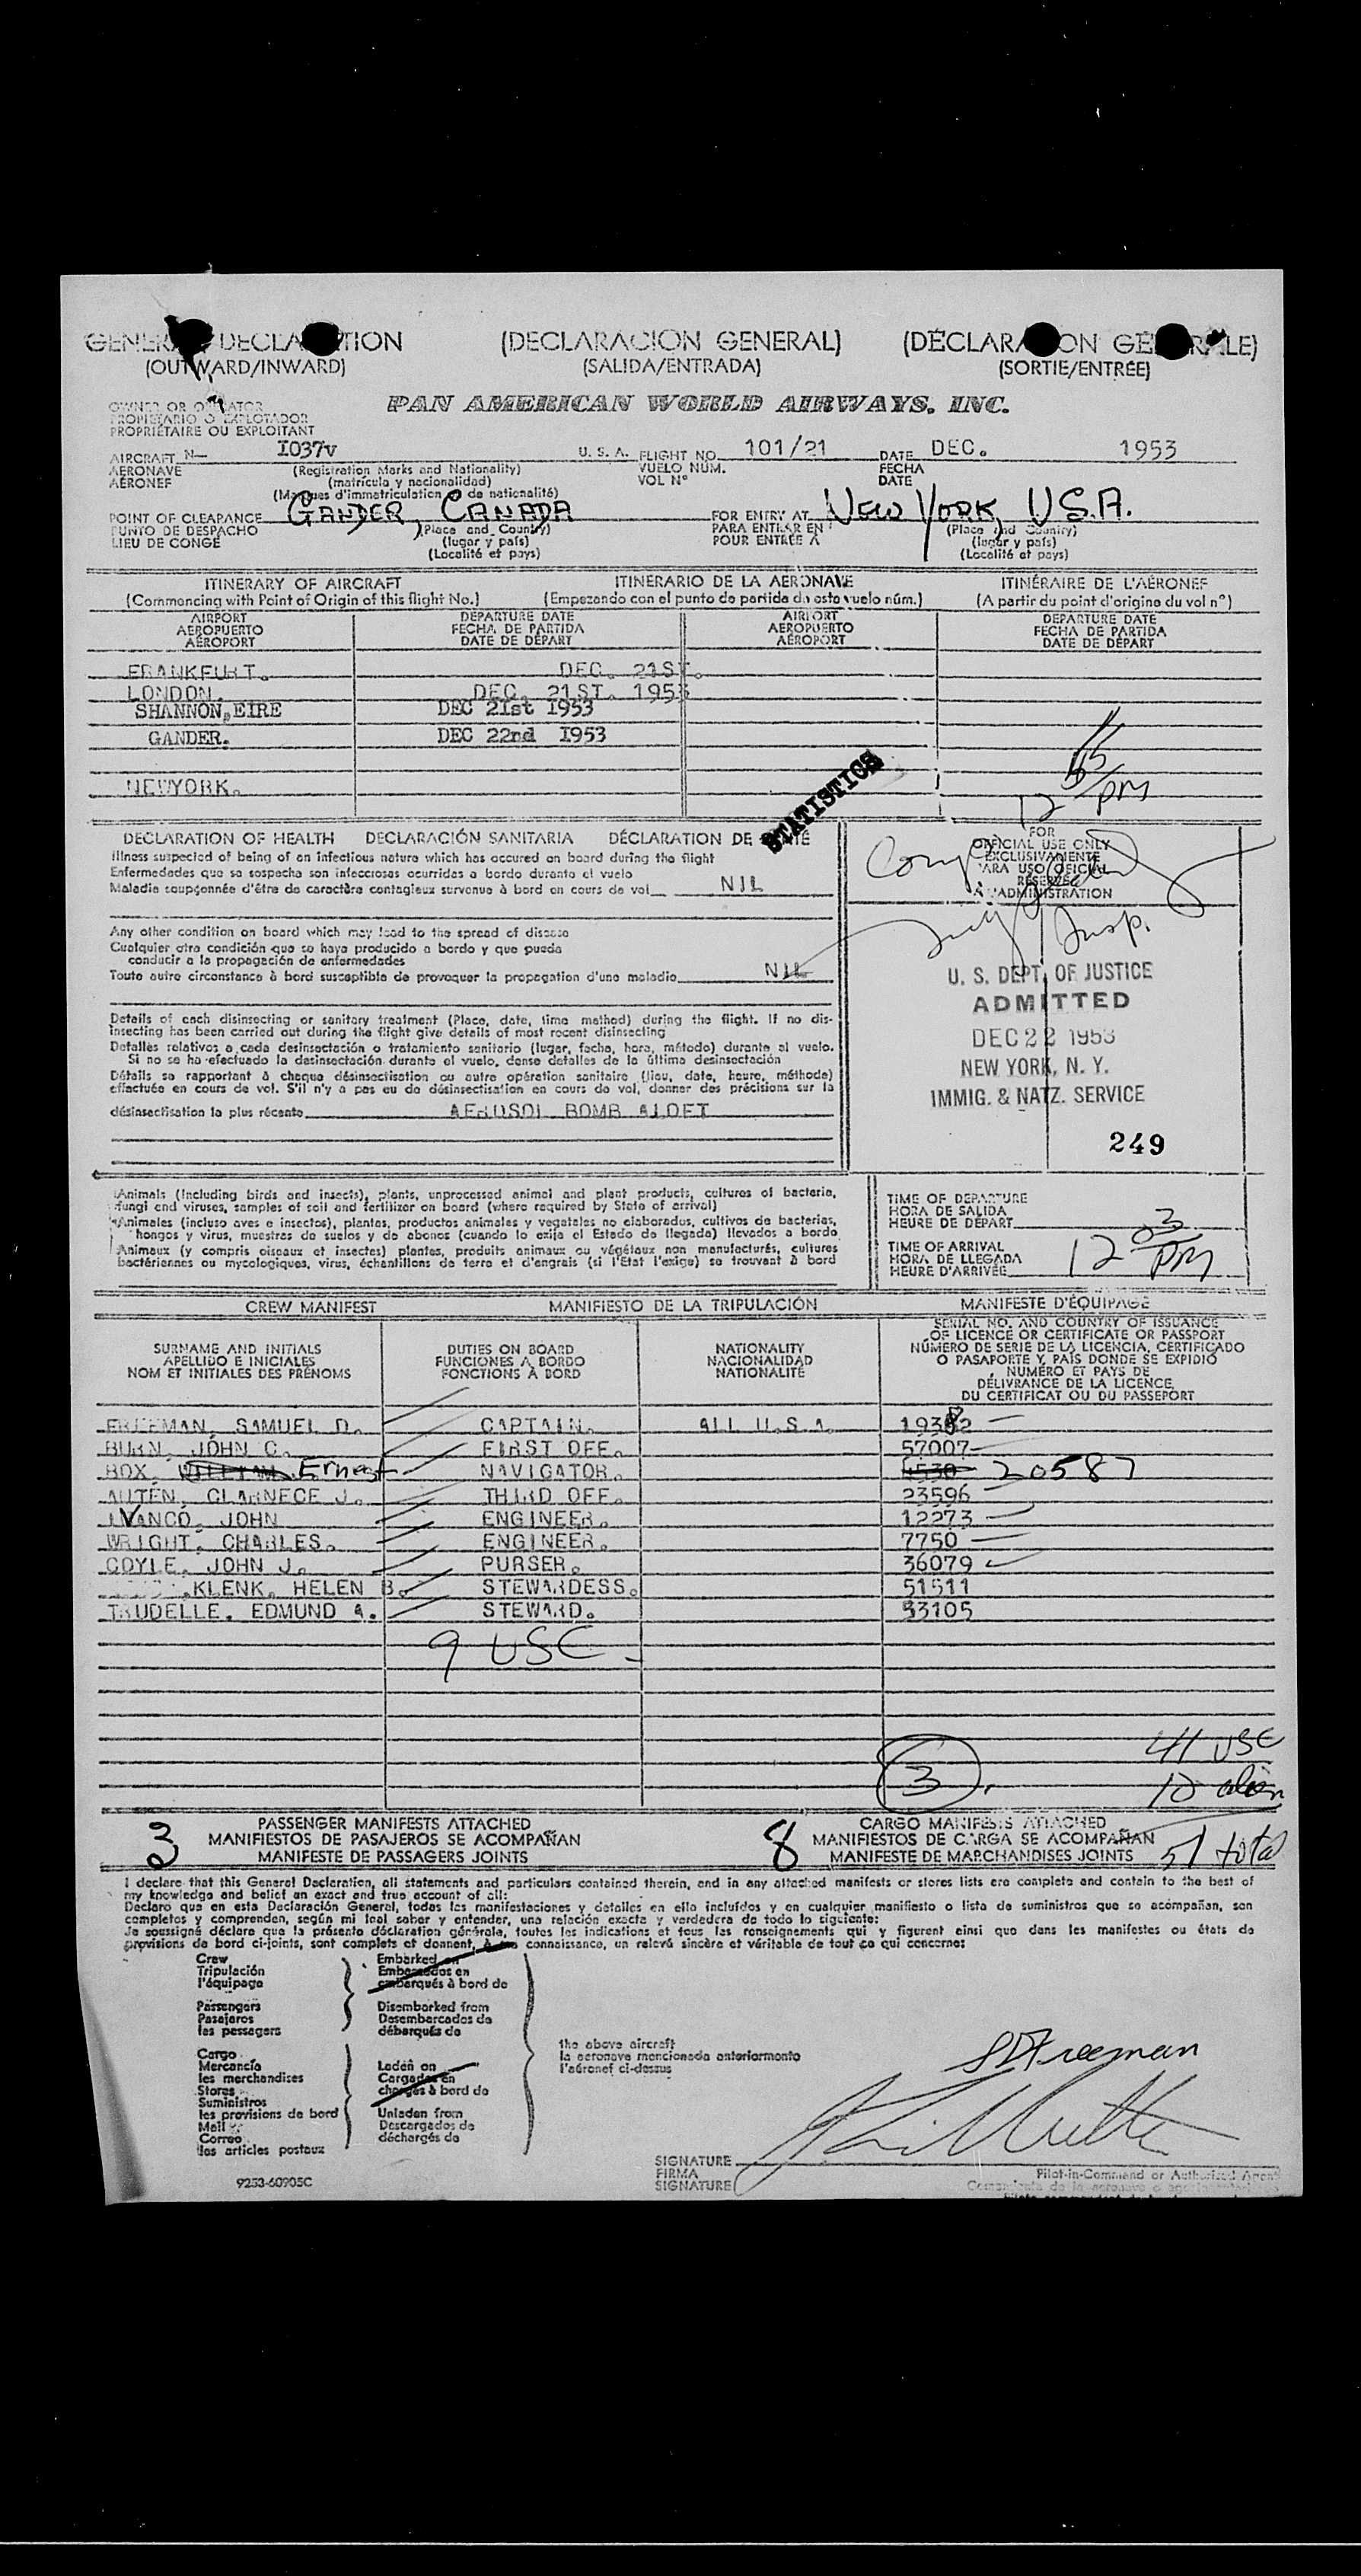 GENERAL DECLARATION (DECLARACION GENERAL) (DÉCLARATION GÉNÉRALE)
(OUTWARD/INWARD) (SALIDA/ENTRADA) (SORTIE/ENTRÉE)
OWNER OR OPERATOR
PROPIETARIO O EXPLOTADOR
PROPRIÉTAIRE OU EXPLOITANT
PAN AMERICAN WORLD AIRWAYS, INC.
AIRCRAFT N— I037v U. S. A. FLIGHT NO. 101/21 DATE DEC. 1953
AERONAVE (Registration Marks and Nationality) VUELO NÚM. FECHA
AÉRONEF (matrícula y nacionalidad) VOL Nº DATE
(Marques d'immatriculation de nationalité)
POINT OF CLEARANCE GANDER, CANADA FOR ENTRY AT NEW YORK, U.S.A.
PUNTO DE DESPACHO (Place and Country) PARA ENTRAR EN (Place and Country)
LIEU DE CONGÉ (lugar y país) POUR ENTRÉE À (lugar y país)
(Localité et pays) (Localité et pays)
ITINERARY OF AIRCRAFT ITINERARIO DE LA AERONAVE ITINÉRAIRE DE L'AÉRONEF
(Commencing with Point of Origin of this flight No.) (Empezando con el punto de partida de este vuelo núm.) (A partir du point d'origine du vol nº)
AIRPORT DEPARTURE DATE AIRPORT DEPARTURE DATE
AEROPUERTO FECHA DE PARTIDA AEROPUERTO FECHA DE PARTIDA
AÉROPORT DATE DE DÉPART AÉROPORT DATE DE DÉPART
FRANKFURT. DEC. 21ST.
LONDON. DEC. 21ST. 1953
SHANNON, EIRE DEC 2Ist I953
GANDER. DEC 22nd I953
NEWYORK.
12 55/PM
STATISTICS
DECLARATION OF HEALTH DECLARACIÓN SANITARIA DÉCLARATION DE SANTÉ
Illness suspected of being of an infectious nature which has occured on board during the flight
Enfermedades que se sospecha son infecciosas ocurridas a bordo durante el vuelo
Maladie soupçonnée d'être de caractère contagieux survenue à bord en cours de vol NIL
Any other condition on board which may lead to the spread of disease
Cualquier otra condición que se haya producido a bordo y que pueda
conducir a la propagación de enfermedades
Toute autre circonstance à bord susceptible de provoquer la propagation d'une maladie NIL
Details of each disinsecting or sanitary treatment (Place, date, time method) during the flight. If no dis-
insecting has been carried out during the flight give details of most recent disinsecting
Detalles relativos a cada desinsectación o tratamiento sanitario (lugar, fecha, hora, método) durante el vuelo.
Si no se ha efectuado la desinsectación durante el vuelo, dense detalles de la última desinsectación
Détails se rapportant à chaque désinsectisation ou autre opération sanitaire (lieu, date, heure, méthode)
effectuée en cours de vol. S'il n'y a pas eu de désinsectisation en cours de vol, donner des précisions sur la
désinsectisation la plus récente AEROSOL BOMB ALOFT
FOR
OFFICIAL USE ONLY
EXCLUSIVAMENTE
PARA USO OFICIAL
RÉSERVÉ
À L'ADMINISTRATION
Insp.
U. S. DEPT. OF JUSTICE
ADMITTED
DEC 22 1953
NEW YORK, N. Y.
IMMIG. & NATZ. SERVICE
249
Animals (including birds and insects), plants, unprocessed animal and plant products, cultures of bacteria,
fungi and viruses, samples of soil and fertilizer on board (where required by State of arrival)
Animales (incluso aves e insectos), plantas, productos animales y vegetales no elaborados, cultivos de bacterias,
hongos y virus, muestras de suelos y de abonos (cuando lo exija el Estado de llegada) llevados a bordo
Animaux (y compris oiseaux et insectes) plantes, produits animaux ou végétaux non manufacturés, cultures
bactériennes ou mycologiques, virus, échantillons de terre et d'engrais (si l'Etat l'exige) se trouvant à bord
TIME OF DEPARTURE
HORA DE SALIDA
HEURE DE DÉPART
TIME OF ARRIVAL
HORA DE LLEGADA
HEURE D'ARRIVÉE 12 03/PM
CREW MANIFEST MANIFIESTO DE LA TRIPULACIÓN MANIFESTE D'ÉQUIPAGE
SURNAME AND INITIALS DUTIES ON BOARD NATIONALITY SERIAL NO. AND COUNTRY OF ISSUANCE
APELLIDO E INICIALES FUNCIONES A BORDO NACIONALIDAD OF LICENCE OR CERTIFICATE OR PASSPORT
NOM ET INITIALES DES PRÉNOMS FONCTIONS À BORD NATIONALITÉ NÚMERO DE SERIE DE LA LICENCIA, CERTIFICADO
O PASAPORTE Y PAÍS DONDE SE EXPIDIÓ
NUMÉRO ET PAYS DE
DÉLIVRANCE DE LA LICENCE
DU CERTIFICAT OU DU PASSEPORT
FREEMAN, SAMUEL D. CAPTAIN. ALL U.S.A. 19382
BURN, JOHN C. FIRST OFF. 57007
BOX, WILLIAM Ernest NAVIGATOR. 4530 20587
AUTEN, CLARNECE J. THIRD OFF. 23596
IVANCO, JOHN ENGINEER. 12273
WRIGHT, CHARLES. ENGINEER. 7750
COYLE, JOHN J. PURSER. 36079
KLENK, HELEN B. STEWARDESS. 51511
TRUDELLE. EDMUND A. STEWARD. 53105
9 USC
41 USC
3 10 alien
3 PASSENGER MANIFESTS ATTACHED 8 CARGO MANIFESTS ATTACHED 51 total
MANIFIESTOS DE PASAJEROS SE ACOMPAÑAN MANIFIESTOS DE CARGA SE ACOMPAÑAN
MANIFESTE DE PASSAGERS JOINTS MANIFESTE DE MARCHANDISES JOINTS
I declare that this General Declaration, all statements and particulars contained therein, and in any attached manifests or stores lists are complete and contain to the best of
my knowledge and belief an exact and true account of all:
Declaro que en esta Declaración General, todas las manifestaciones y detalles en ella incluídos y en cualquier manifiesto o lista de suministros que se acompañan, son
completos y comprenden, según mi leal saber y entender, una relación exacta y verdadera de todo lo siguiente:
Je soussigné déclare que la présente déclaration générale, toutes les indications et tous les renseignements qui y figurent ainsi que dans les manifestes ou états de
provisions de bord ci-joints, sont complets et donnent, à ma connaissance, un relevé sincère et véritable de tout ce qui concerne:
Crew Embarked on
Tripulación Embarcados en
l'équipage embarqués à bord de
Passengers Disembarked from
Pasajeros Desembarcados de
les passagers débarqués de
the above aircraft
la aeronave mencionada anteriormente
l'aéronef ci-dessus
Cargo
Mercancía Laden on
les merchandises Cargados en
Stores chargés à bord de
Suministros
les provisions de bord Unladen from
Mail Descargados de
Correo déchargés de
les articles postaux
SDFreeman
SIGNATURE
FIRMA
SIGNATURE
Pilot-in-Command or Authorized Agent
9253-60905C